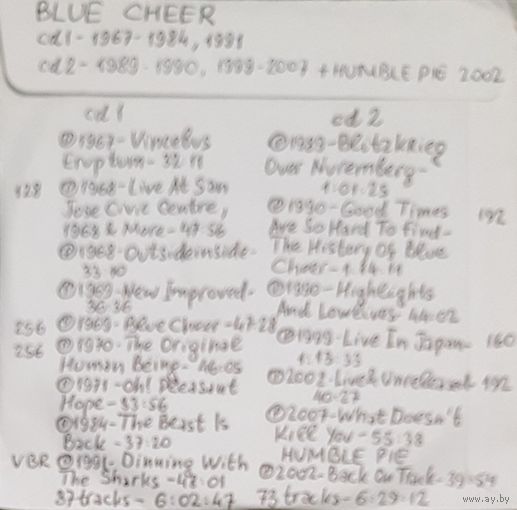 BLUE CHEER
cd1 - 1967-1984, 1991
cd2 - 1989-1990, 1999-2007 + HUMBLE PIE 2002
cd1
℗1967-Vincebus
Eruptum- 32:11
128 ℗1968-Live At San
Jose Civic Centre,
1968 & More- 47:56
℗1968-Outsideinside-
33:10
℗1969-New Improved-
36:36
256 ℗1969-Blue Cheer-47:28
256 ℗1970-The Original
Human Being- 46:05
℗1971-Oh! Pleasant
Hope- 33:56
℗1984-The Beast Is
Back -37:20
VBR ℗1991-Dinning With
The Sharks -47:01
87 tracks- 6:02:47
cd2
℗1989-Blitzkrieg
Over Nuremberg-
1:01:23
℗1990-Good Times 192
Are So Hard To Find-
The History Of Blue
Cheer-1:14:11
℗1990-Highlights
And Lowlives- 44:02
℗1999-Live In Japan- 160
1:13:33
℗2002-Live & Unreleased 192
40:27
℗2007-What Doesn't
Kill You-55:38
HUMBLE PIE
℗2002-Back On Track-39:54
73 tracks- 6:29:12
www.ay.by